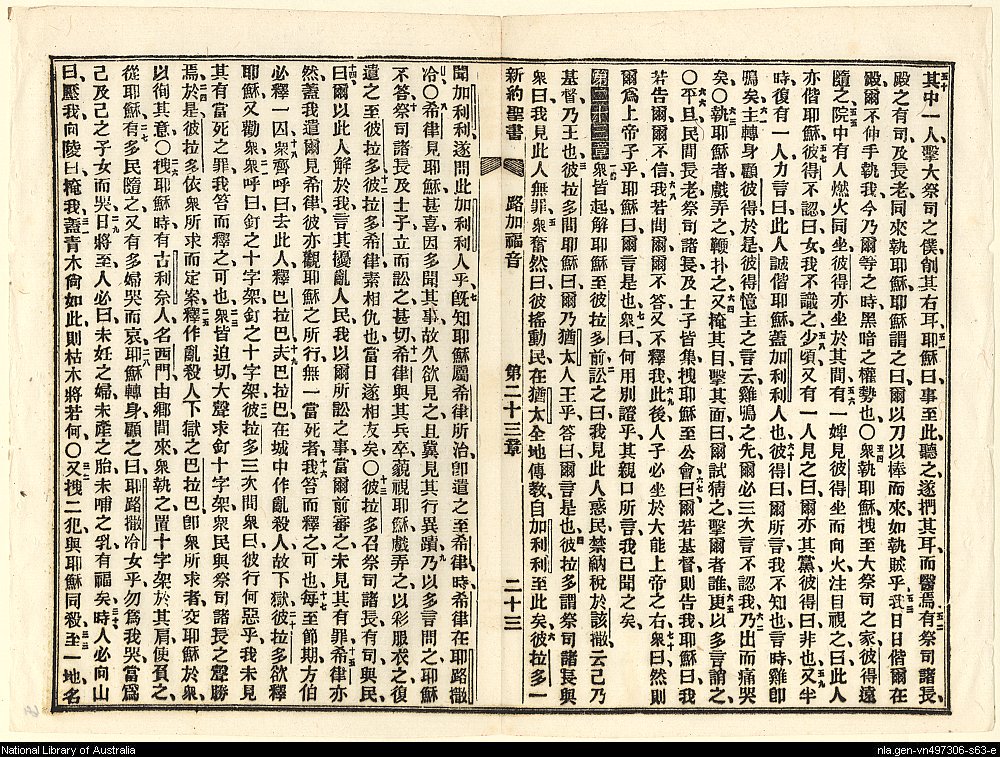 其中一人擊大祭司之僕削其右耳耶穌曰事至此聽之遂捫其耳而醫焉有祭司諸長
殿之有司及長老同來執耶穌耶穌謂之曰爾以刀以棒而來如執賊乎我日日偕爾在
殿爾不伸手執我今乃爾等之時黑暗之權勢也〇衆執耶穌拽至大祭司之家彼得遠
隨之院中有人燃火同坐彼得亦坐於其間有一婢見彼得坐而向火注目視之曰此人
亦偕耶穌彼得不認曰女我不識之少頃又有一人見之曰爾亦其黨彼得曰非也又半
時復有一人力言曰此人誠偕耶穌蓋加利利人也彼得曰爾所言我不知也言時雞卽
鳴矣主轉身顧彼得於是彼得憶主之言云雞鳴之先爾必三次言不認我乃出而痛哭
矣〇執耶穌者戲弄之鞭扑之又掩其目擊其面曰爾試猜之擊爾者誰更以多言誚之
〇平旦民間長老祭司諸長及士子皆集拽耶穌至公會曰爾若基督則告我耶穌曰我
若告爾爾不信我若問爾爾不答又不釋我此後人子必坐於大能上帝之右衆曰然則
爾爲上帝子乎耶穌曰爾言是也衆曰何用別證乎其親口所言我已聞之矣
第二十三章衆皆起解耶穌至彼拉多前訟之曰我見此人惑民禁納稅於該撒云己乃
基督乃王也彼拉多問耶穌曰爾乃猶太人王乎答曰爾言是也彼拉多謂祭司諸長與
衆曰我見此人無罪衆奮然曰彼搖動民在猶太全地傳教自加利利至此矣彼拉多一
新約聖書 路加福音 第二十三章 二十三
聞加利利遂問此加利利人乎旣知耶穌屬希律所治卽遣之至希律時希律在耶路撒
冷〇希律見耶穌甚喜因多聞其事故久欲見之且冀見其行異蹟乃以多言問之耶穌
不答祭司諸長及士子立而訟之甚切希律與其兵卒藐視耶穌戲弄之以彩服衣之復
遣之至彼拉多彼拉多希律素相仇也當日遂相友矣〇彼拉多召祭司諸長有司與民
曰爾以此人解於我言其擾亂人民我以爾所訟之事當爾前審之未見其有罪希律亦
然蓋我遣爾見希律彼亦觀耶穌之所行無一當死者我笞而釋之可也每至節期方伯
必釋一囚衆齊呼曰去此人釋巴拉巴夫巴拉巴在城中作亂殺人故下獄彼拉多欲釋
耶穌又勸衆衆呼曰釘之十字架釘之十字架彼拉多三次問衆曰彼行何惡乎我未見
其有當死之罪我笞而釋之可也衆皆迫切大聲求釘十字架衆民與祭司諸長之聲勝
焉於是彼拉多依衆所求而定案釋作亂殺人下獄之巴拉巴卽衆所求者交耶穌於衆
以徇其意〇拽耶穌時有古利奈人名西門由鄉間來衆執之置十字架於其肩使負之
從耶穌有多民隨之又有多婦哭而哀耶穌轉身顧之曰耶路撒冷女乎勿爲我哭當爲
己及己之子女而哭日將至人必曰未妊之婦未產之胎未哺之乳有福矣時人必向山
曰壓我向陵曰掩我蓋青木尙如此則枯木將若何〇又拽二犯與耶穌同殺至一地名
National Library of Australia
nla.gen-vn497306-s63-e